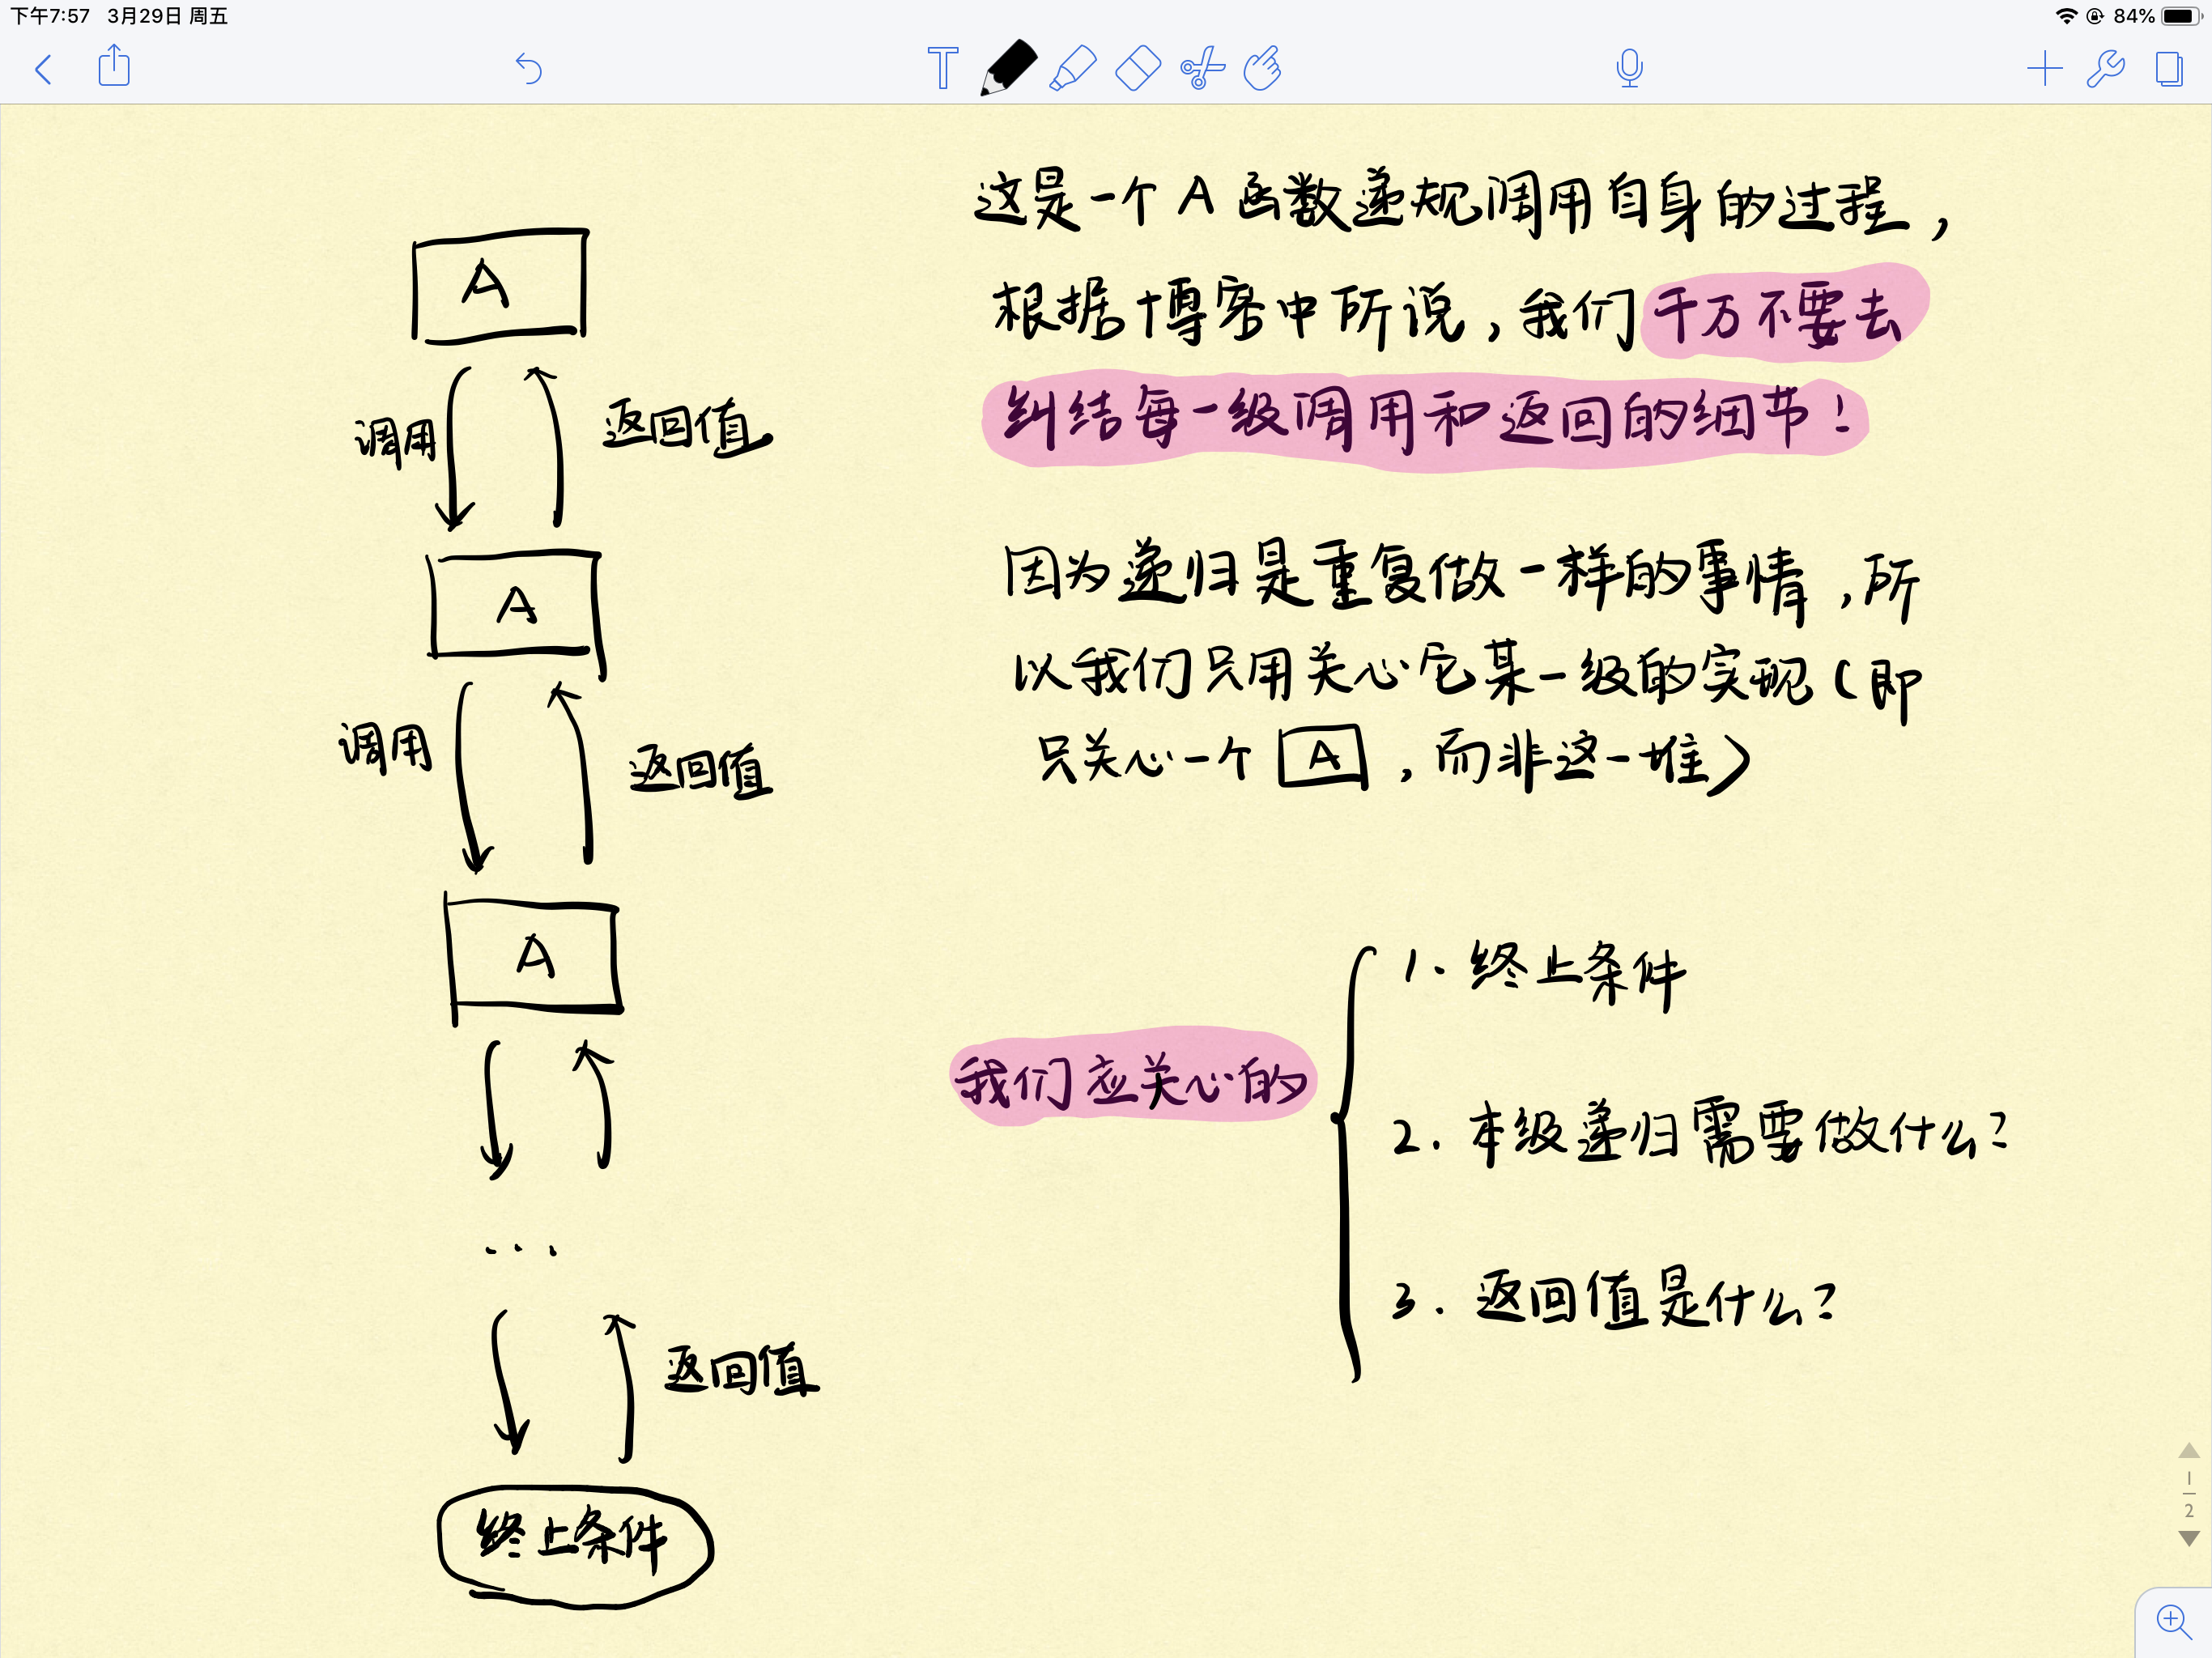 下午7:57 3月29日 周五
84%
T
A
调用
返回值
A
调用
返回值
A
...
返回值
终止条件
这是一个 A 函数递规调用自身的过程，
根据博客中所说，我们千万不要去
纠结每一级调用和返回的细节！
因为递归是重复做一样的事情，所
以我们只用关心它某一级的实现（即
只关心一个 A ，而非这一堆）
我们应关心的
1. 终止条件
2. 本级递归需要做什么？
3. 返回值是什么？
1
2